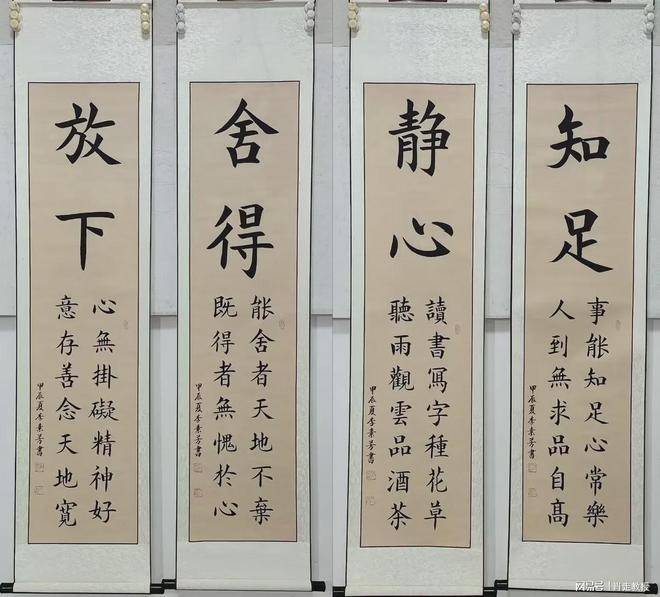 知足
事能知足心常樂
人到無求品自高
甲辰夏李素芳書
静心
讀書寫字種花草
聽雨觀雲品酒茶
甲辰夏李素芳書
舍得
能舍者天地不棄
既得者無愧於心
甲辰夏李素芳書
放下
心無掛礙精神好
意存善念天地寬
甲辰夏李素芳書
网易号